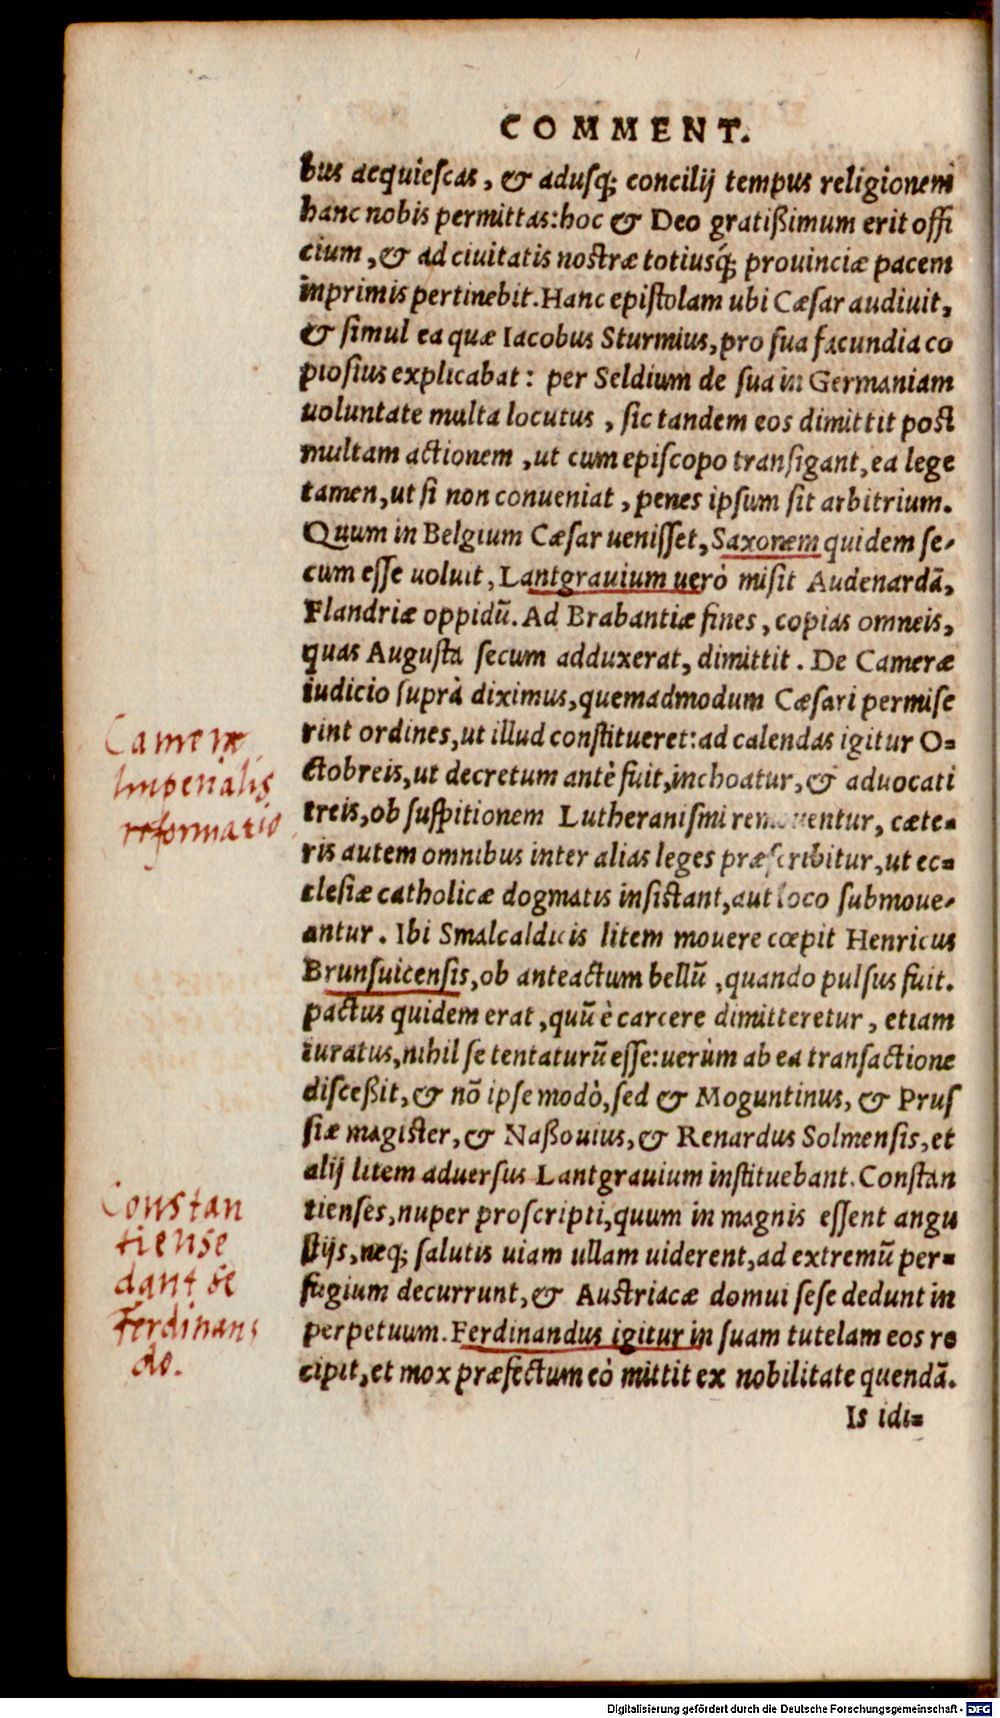 COMMENT.
bus acquiescas, & adusq; concilij tempus religionem
hanc nobis permittas: hoc & Deo gratißimum erit offi
cium, & ad ciuitatis nostræ totiusq́; prouinciæ pacem
inprimis pertinebit. Hanc epistolam ubi Cæsar audiuit,
& simul ea quæ Iacobus Sturmius, pro sua facundia co
piosius explicabat: per Seldium de sua in Germaniam
uoluntate multa locutus, sic tandem eos dimittit post
multam actionem, ut cum episcopo transigant, ea lege
tamen, ut si non conueniat, penes ipsum sit arbitrium.
Quum in Belgium Cæsar uenisset, Saxonem quidem se-
cum esse uoluit, Lantgrauium uerò misit Audenardã,
Flandriæ oppidũ. Ad Brabantiæ fines, copias omneis,
quas Augusta secum adduxerat, dimittit. De Cameræ
iudicio suprà diximus, quemadmodum Cæsari permise
rint ordines, ut illud constitueret: ad calendas igitur O=
ctobreis, ut decretum antè fuit, inchoatur, & aduocati
treis, ob suspitionem Lutheranismi remouentur, cæte=
ris autem omnibus inter alias leges præscribitur, ut ec=
clesiæ catholicæ dogmatis insistant, aut loco submoue-
antur. Ibi Smalcaldicis litem mouere cœpit Henricus
Brunsuicensis, ob anteactum bellũ, quando pulsus fuit.
pactus quidem erat, quũ è carcere dimitteretur, etiam
iuratus, nihil se tentaturũ esse: uerùm ab ea transactione
disceßit, & nõ ipse modò, sed & Moguntinus, & Prus
siæ magister, & Naßouius, & Renardus Solmensis, et
alij litem aduersus Lantgrauium instituebant. Constan
tienses, nuper proscripti, quum in magnis essent angu
stijs, neq; salutis uiam ullam uiderent, ad extremũ per=
fugium decurrunt, & Austriacæ domui sese dedunt in
perpetuum. Ferdinandus igitur in suam tutelam eos re
cipit, et mox præfectum eò mittit ex nobilitate quendã.
Is idi=
Cameræ
Imperialis
reformatio
Constan
tiense
dant se
Ferdinan
do.
Digitalisierung gefördert durch die Deutsche Forschungsgemeinschaft - DFG